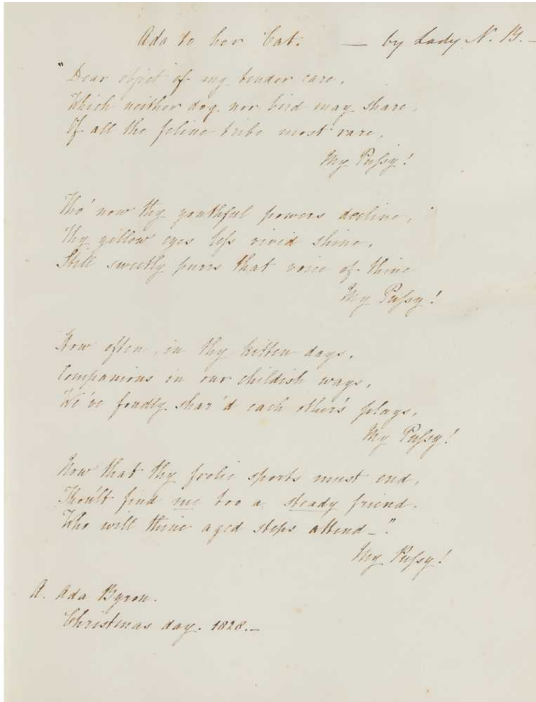 Ada to her Cat. — by Lady N. B. —
"Dear object of my tender care,
Which neither dog nor bird may share,
Of all the feline tribe most rare,
My Pussy!
Tho' now thy youthful powers decline,
Thy yellow eyes less vivid shine,
Still sweetly purrs that voice of thine
My Pussy!
How often in thy kitten days,
Companions in our childish ways,
We've fondly shar'd each other's plays,
My Pussy!
Now that thy frolic sports must end,
Thou'lt find me too a steady friend,
Who will thine aged steps attend—"
My Pussy!
A. Ada Byron.
Christmas day. 1828.—